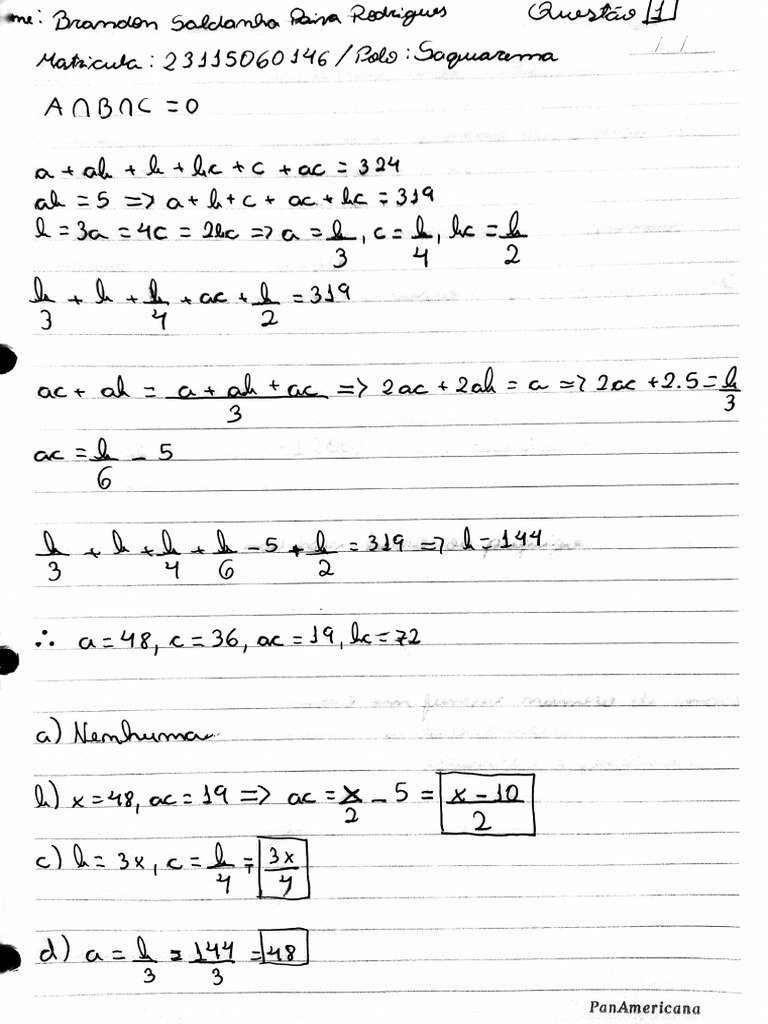 me: Brandon Saldanha Paiva Rodrigues Questão 1
Matricula: 23115060146 / Polo: Saquarema
A∩B∩C = 0
a + ab + b + bc + c + ac = 324
ab = 5 => a + b + c + ac + bc = 319
b = 3a = 4c = 2bc => a = b/3, c = b/4, bc = b/2
b/3 + b + b/4 + ac + b/2 = 319
ac + ab = (a + ab + ac)/3 => 2ac + 2ab = a => 2ac + 2.5 = b/3
ac = b/6 - 5
b/3 + b + b/4 + b/6 - 5 + b/2 = 319 => b = 144
∴ a = 48, c = 36, ac = 19, bc = 72
a) Nenhuma
b) x = 48, ac = 19 => ac = x/2 - 5 = (x - 10)/2
c) b = 3x, c = b/4 = 3x/4
d) a = b/3 = 144/3 = 48
PanAmericana